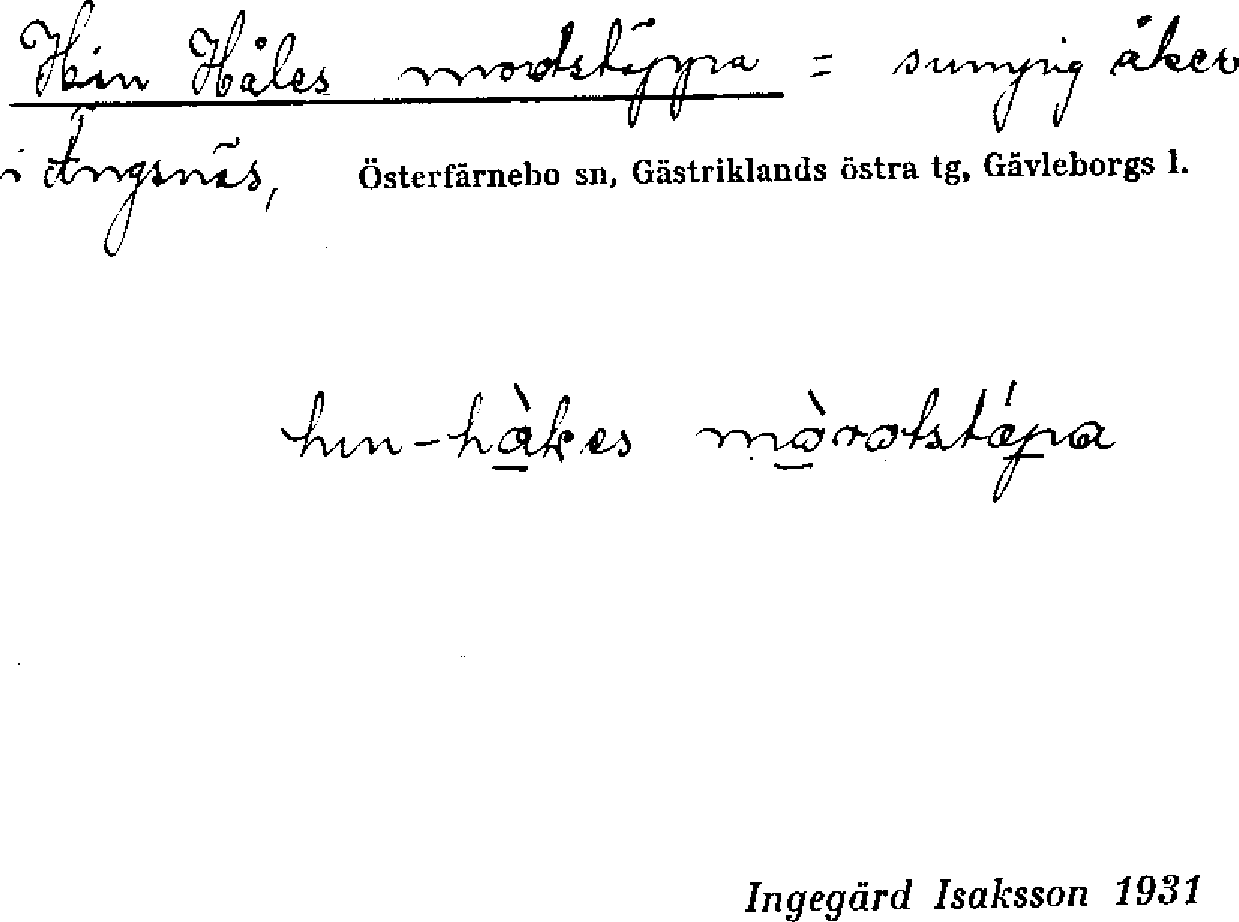 Hin Håles morotstäppa = sumpig åker
i Ängsnäs, Österfärnebo sn, Gästriklands östra tg, Gävleborgs l.
hın-hàkes mòrotstǽpa
Ingegärd Isaksson 1931